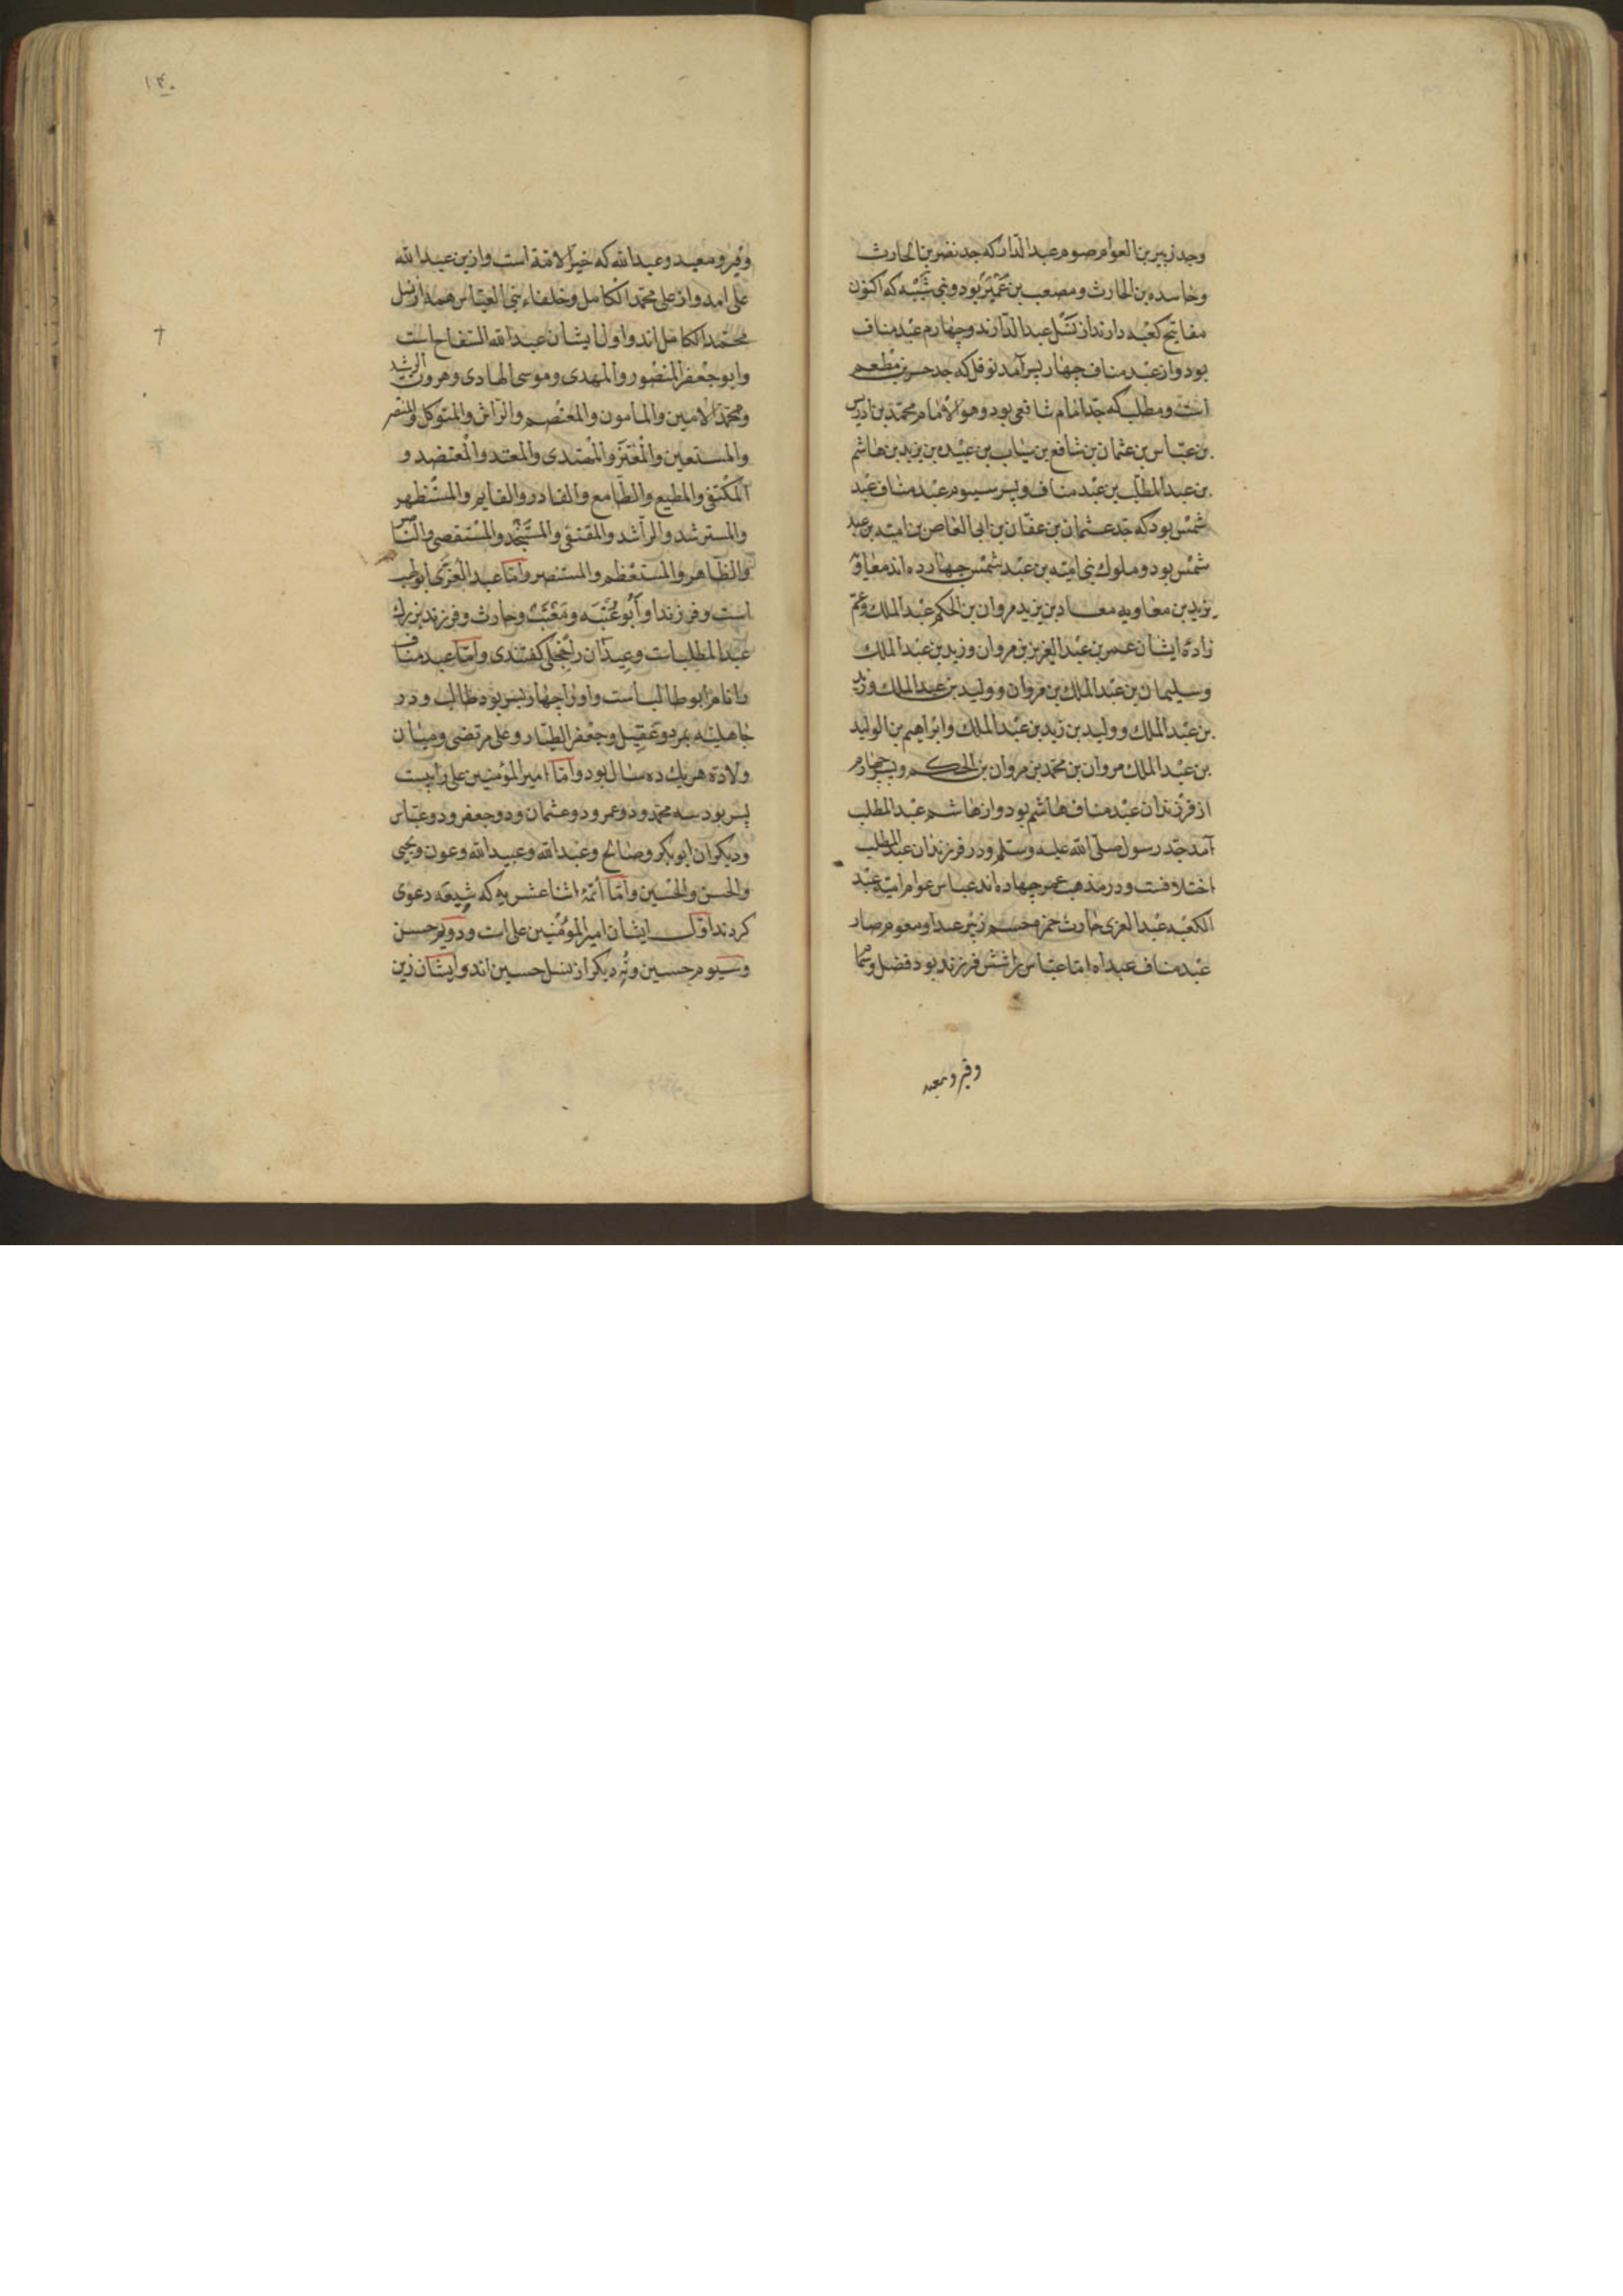 وجد زبیر بن العوام صوم عبد الدار که جد نضر بن الحارث
بن الحارث ومصعب بن عمیر بود وبنی شیبه که اکنون
مفاتیح کعبه دارند از نسل عبد الدارند وچهارم عبد مناف
بود واز عبد مناف چهار پسر آمد نوفل که جد مطعم
است ومطلب که جد امام شافعی بود وهو الامام محمد بن ادریس
بن عباس بن عثمان بن شافع بن بن بن یزید بن هاشم
بن عبد المطلب بن عبد مناف وپسر سیوم عبد مناف عبد
شمس بود که جد عثمان بن عفان بن ابی العاص بن امیه بن عبد
شمس بود وملوک بنی امیه بن عبد شمس چهارده اند معاویه
یزید بن معاویه بن یزید مروان بن الحکم عبد الملک وعم
زاده ایشان عمر بن عبد العزیز بن مروان وزید بن عبد الملک
وسلیمان بن عبد الملک بن مروان وولید بن عبد الملک
بن عبد الملک وولید بن زید بن عبد الملک وابراهیم بن الولید
بن عبد الملک مروان بن محمد بن مروان بن الحکم وپسر چهارم
از فرزندان عبد مناف هاشم بود واز هاشم عبد المطلب
آمد جد رسول صلی الله علیه وسلم ودر فرزندان عبد المطلب
اختلافست ودر مذهب چهارده اند عباس عوام امیه عبد
الکعبه عبد العزی حارث حمزه زبیر
عبد مناف امّا عباس را شش فرزند بود فضل
وقبر ومعبد
۱۴۰
وقبر ومعبد وعبد الله که خیر الامة است واز بن عبد الله
علی امد واز علی محمد الکامل وخلفاء بنی العباس همه از نسل
محمد الکامل اند واول ایشان عبد الله السفاح است
وابو جعفر المنصور والمهدی وموسی الهادی وهرون الرشید
ومحمد الامین والمامون والمعتصم والواثق والمتوکل والمنتصر
والمستعین والمعتز والمهتدی والمعتمد والمعتضد و
المکتفی والمطیع والطامع والقادر والقایم والمستظهر
والمسترشد والراشد والمقتفی والمستنجد والمستقصی والناصر
والظاهر والمستعظم والمستنصر وامّا عبد العزی ابو لهب
است وفرزند او ابو عتبه ومعتب وحارث وفرزند بزرک
عبد المطلب است را گفتندی وامّا عبد مناف
را نام ابو طالب است واو را چهار پسر بود طالب ودر
جاهلیه بمرد وعقیل وجعفر الطیار وعلی مرتضی ومیان
ولادة هر یک ده سال بود وامّا امیر المؤمنین علی را بیست
پسر بود سه محمد ودو عمر ودو عثمان ودو جعفر ودو عباس
ودیکران ابو بکر وصالح وعبد الله وعبید الله وعون ویحیی
والحسن والحسین وامّا ائمة اثنا عشریه که شیعه دعوی
کردند اول ایشان امیر المؤمنین علی است ودویم حسن
وسیوم حسین ونُه دیکر از نسل حسین اند وایشان زین